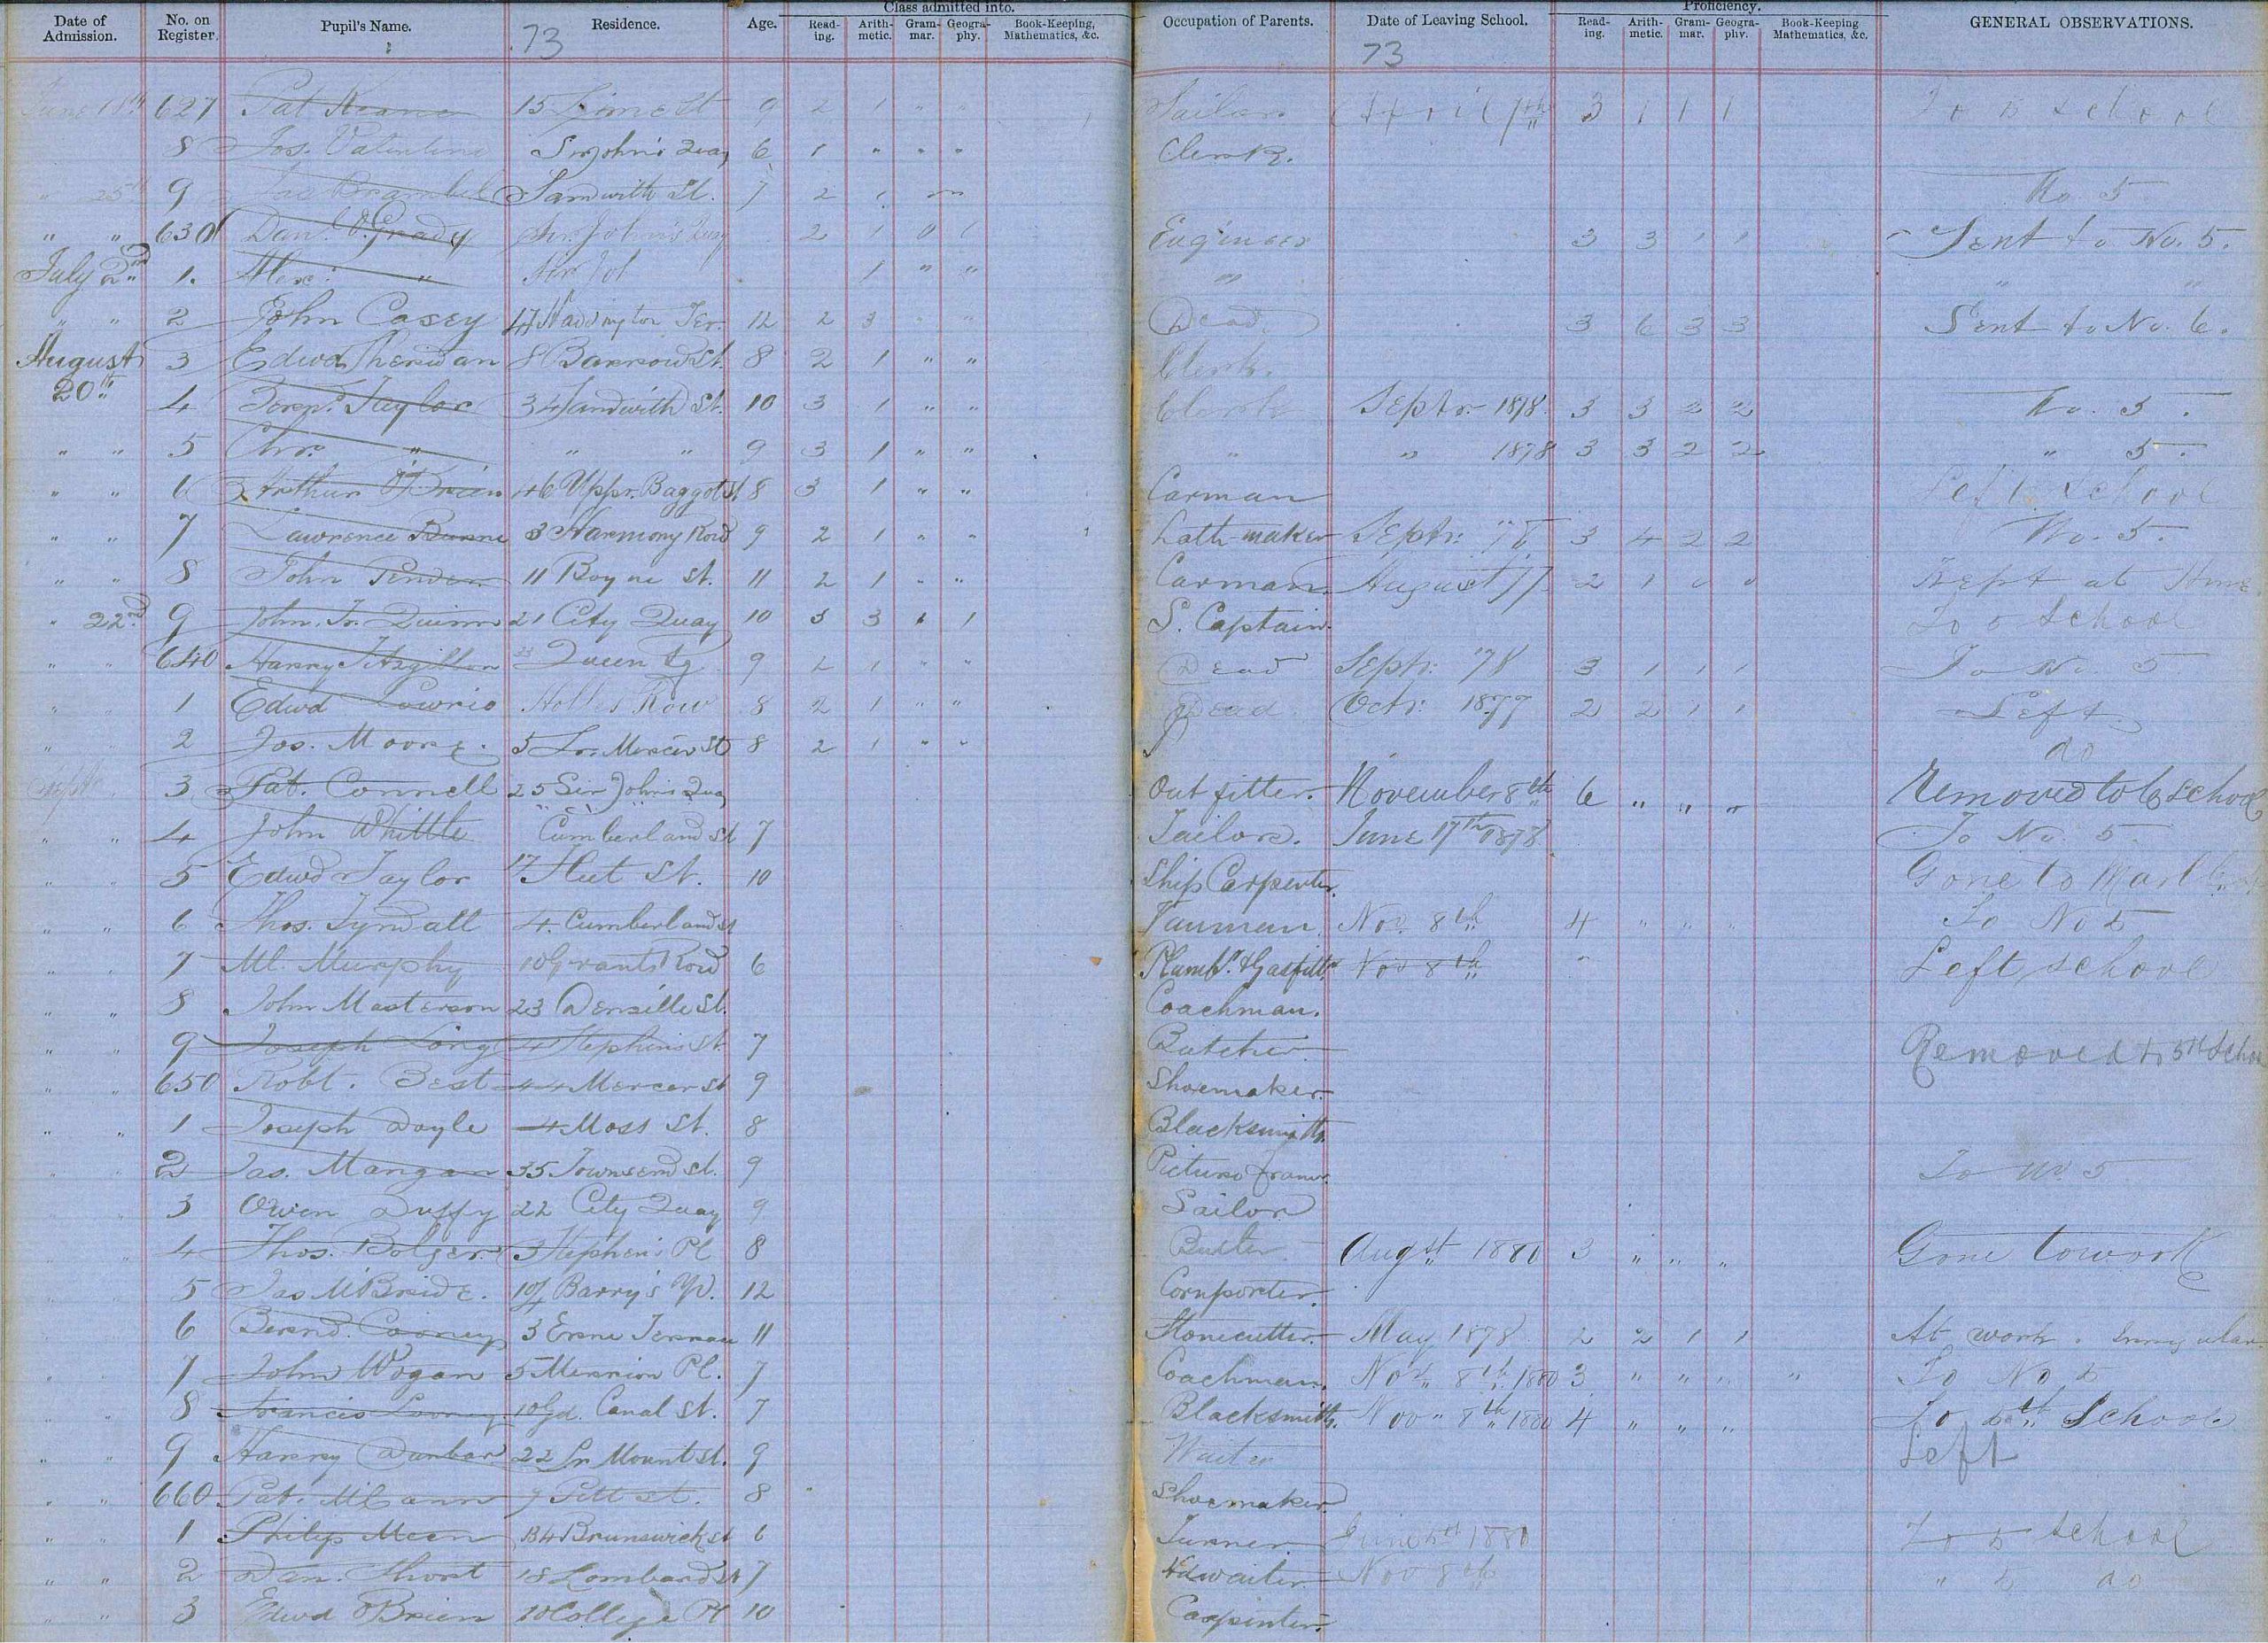 Date of Admission. No. on Register. Pupil's Name. Residence. Age. Class admitted into. Reading. Arithmetic. Grammar. Geography. Book-Keeping, Mathematics, &c. Occupation of Parents. Date of Leaving School. Proficiency. Reading. Arithmetic. Grammar. Geography. Book-Keeping Mathematics, &c. GENERAL OBSERVATIONS.
73 73
June 18th 627 Pat Keane 15 Lime St 9 2 1 " " April 3 1 1 1 To 5 School
8 Jos. Valentine Sir John's Quay 6 1 " " " Clerk.
" 25th 9 Sandwith St. 7 2 No 5
" " 630 Danl. O'Grady Sir John's Quay 2 1 0 1 Engineer 3 3 1 1 Sent to No. 5.
July 2nd 1. Alex: " 1 " " " " "
" " 2 John Casey 47 Haddington Ter. 12 2 3 Dead 3 6 3 3 Sent to No. 6.
August 20th 3 Edwd Sheridan 8 Barrow St. 8 2 1 " " Clerk.
4 Taylor 34 Sandwith St. 10 3 1 " " Clerk Septr. 1878. 3 3 2 2 No. 5.
" " 5 Chr. " " " 9 3 1 " " " " 1878 3 3 2 2 " 5.
" " 6 Arthur O'Brien 46 Uppr. Baggot St 8 3 1 " " Carman Left School
" " 7 Lawrence Burne 3 Harmony Row 9 2 1 " " Lath-maker Septr: '78 3 4 2 2 No. 5.
" " 8 John 11 Boyne St. 11 2 1 " " Carman. August 77. 2 1 0 0 Kept at Home
" 22nd 9 John Quinn 21 City Quay 10 3 3 1 1 S. Captain. School
" " 640 Harry Fitzgibbon 33 Queen Sq. 9 2 1 " " Dead Septr: '78 3 1 1 1 To No. 5.
" " 1 Edwd Lowrie Holles Row 8 2 1 " " Dead Octr: 1877 2 2 1 1 Left.
" " 2 Jos. Moore. 5 Lr. Mercer St 8 2 1 " " do
Septr 3 Pat. Connell 25 Sir John's Quay Out fitter. November 8th 6 " " " Removed to 6 School
" " 4 John Whittle Cumberland St 7 Tailor. June 17th 1878. To No. 5.
" " 5 Edwd Taylor 17 Fleet St. 10 Ship Carpenter. Gone to Marlbro.
" " 6 Thos. Tyndall 4. Cumberland St Vanman. Nov. 8th 4 " " " To No 5
" " 7 Ml. Murphy 10 Grants Row 6 Plumbr. & Gasfittr Nov 8th " Left School
" " 8 John Masterson 23 Denzille St. Coachman.
" " 9 Joseph Long 4 Stephens St. 7 Butcher. Removed to 5th School
" " 650 Robt. Best 44 Mercer St 9 Shoemaker.
" " 1 Joseph Doyle 4 Moss St. 8 Blacksmith.
" " 2 Jas. Mangan 35 Townsend St. 9 Picture framer. To No. 5
3 Owen Duffy 22 City Quay 9 Sailor
4 Thos. Bolger. 3 Stephen's Pl 8 Butler Augst 1880 3 " " " Gone to work
5 Jas McBride. 10½ Barry's Yd. 12 Cornporter.
6 Bernd. Cooney 3 Erne Terrace 11 Stonecutter. May 1878. 2 2 1 1 At work. Irregular.
7 John Wogan 5 Merrion Pl. 7 Coachman. Nov. 8th 1880 3 " " " " To No 5
8 Francis 10 Gd. Canal St. 7 Blacksmith. Nov " 8th 1880 4 " " " To 5th School
" " 9 Harry Dunbar 22 Lr Mount St. 9 Waiter Left
" " 660 Pat. McCann 7 Pitt St. 8 Shoemaker.
" " 1 Philip Meen 134 Brunswick St 6 Turner. June 5th 1880 To 5 School
" " 2 Dan. Short 18 Lombard St 7 Nov 8th " 5 do
" " 3 Edwd O'Brien 10 College Pl 10 Carpinter.